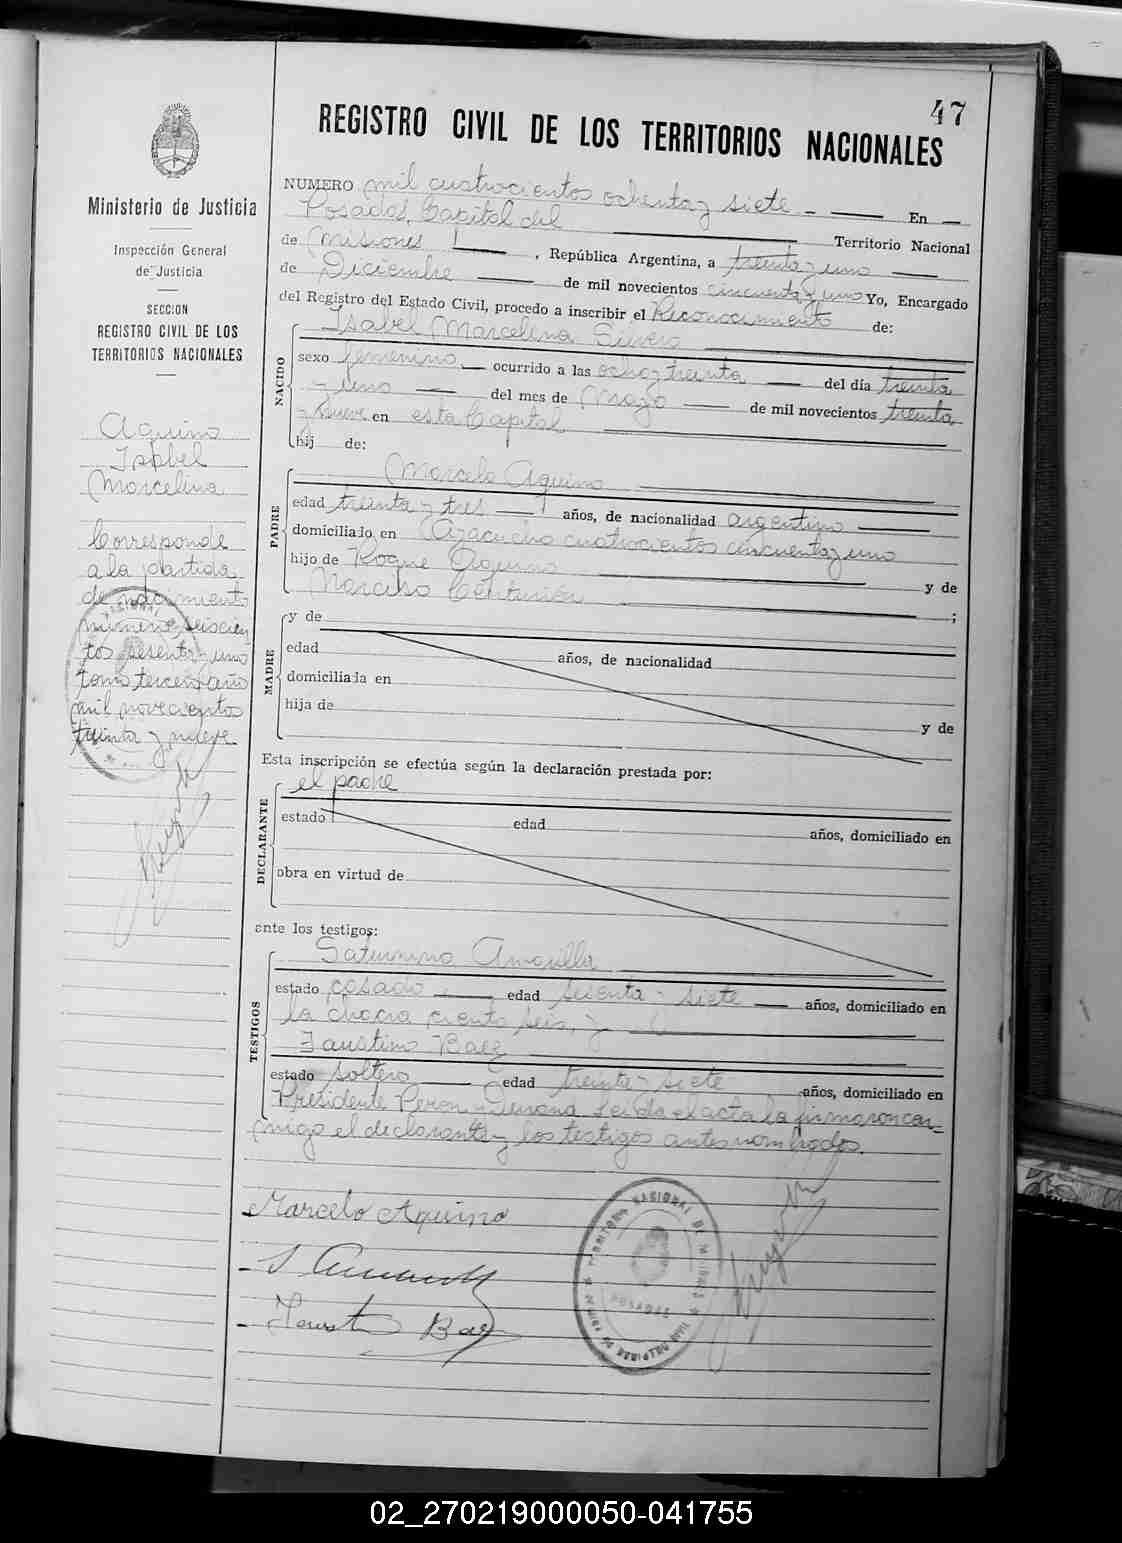 47
REGISTRO CIVIL DE LOS TERRITORIOS NACIONALES
Ministerio de Justicia
Inspección General
de Justicia
SECCION
REGISTRO CIVIL DE LOS
TERRITORIOS NACIONALES
Aquino
Isabel
Marcelina
Corresponde
a la partida
de nacimiento
número seiscien
tos sesenta y uno
tomo tercero año
mil novecientos
treinta y nueve
NUMERO mil cuatrocientos ochenta y siete En
Posadas, Capital del Territorio Nacional
de Misiones, República Argentina, a treinta y uno
de Diciembre de mil novecientos cincuenta y uno Yo, Encargado
del Registro del Estado Civil, procedo a inscribir el Reconocimiento de:
NACIDO
Isabel Marcelina Silvero
sexo femenino, ocurrido a las ocho y treinta del día treinta
y uno del mes de Mayo de mil novecientos treinta
y nueve en esta Capital
hij de:
PADRE
Marcelo Aquino
edad treinta y tres años, de nacionalidad argentino
domiciliado en Ayacucho cuatrocientos cincuenta y uno
hijo de Roque Aquino y de
Narcisa Centurión ;
MADRE
y de
edad años, de nacionalidad
domiciliada en
hija de y de
Esta inscripción se efectúa según la declaración prestada por:
DECLARANTE
el padre
estado edad años, domiciliado en
obra en virtud de
ante los testigos:
TESTIGOS
Saturnino
estado casado, edad sesenta y siete años, domiciliado en
la chacra ciento seis, y
Faustino Baez
estado soltero edad treinta y siete años, domiciliado en
Presidente Peron y Leida el acta la firmaron con-
migo el declarante y los testigos antes nombrados.
Marcelo Aquino
Baez
02_270219000050-041755